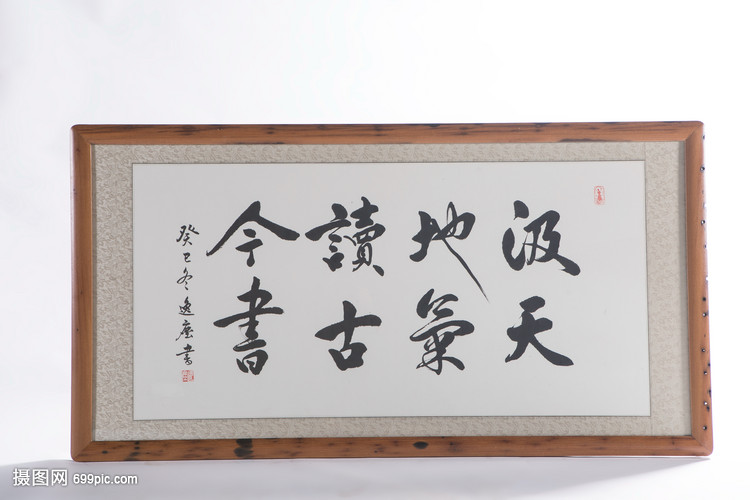 汲天
地氣
讀古
今書
癸巳冬逸塵書
摄图网 699pic.com